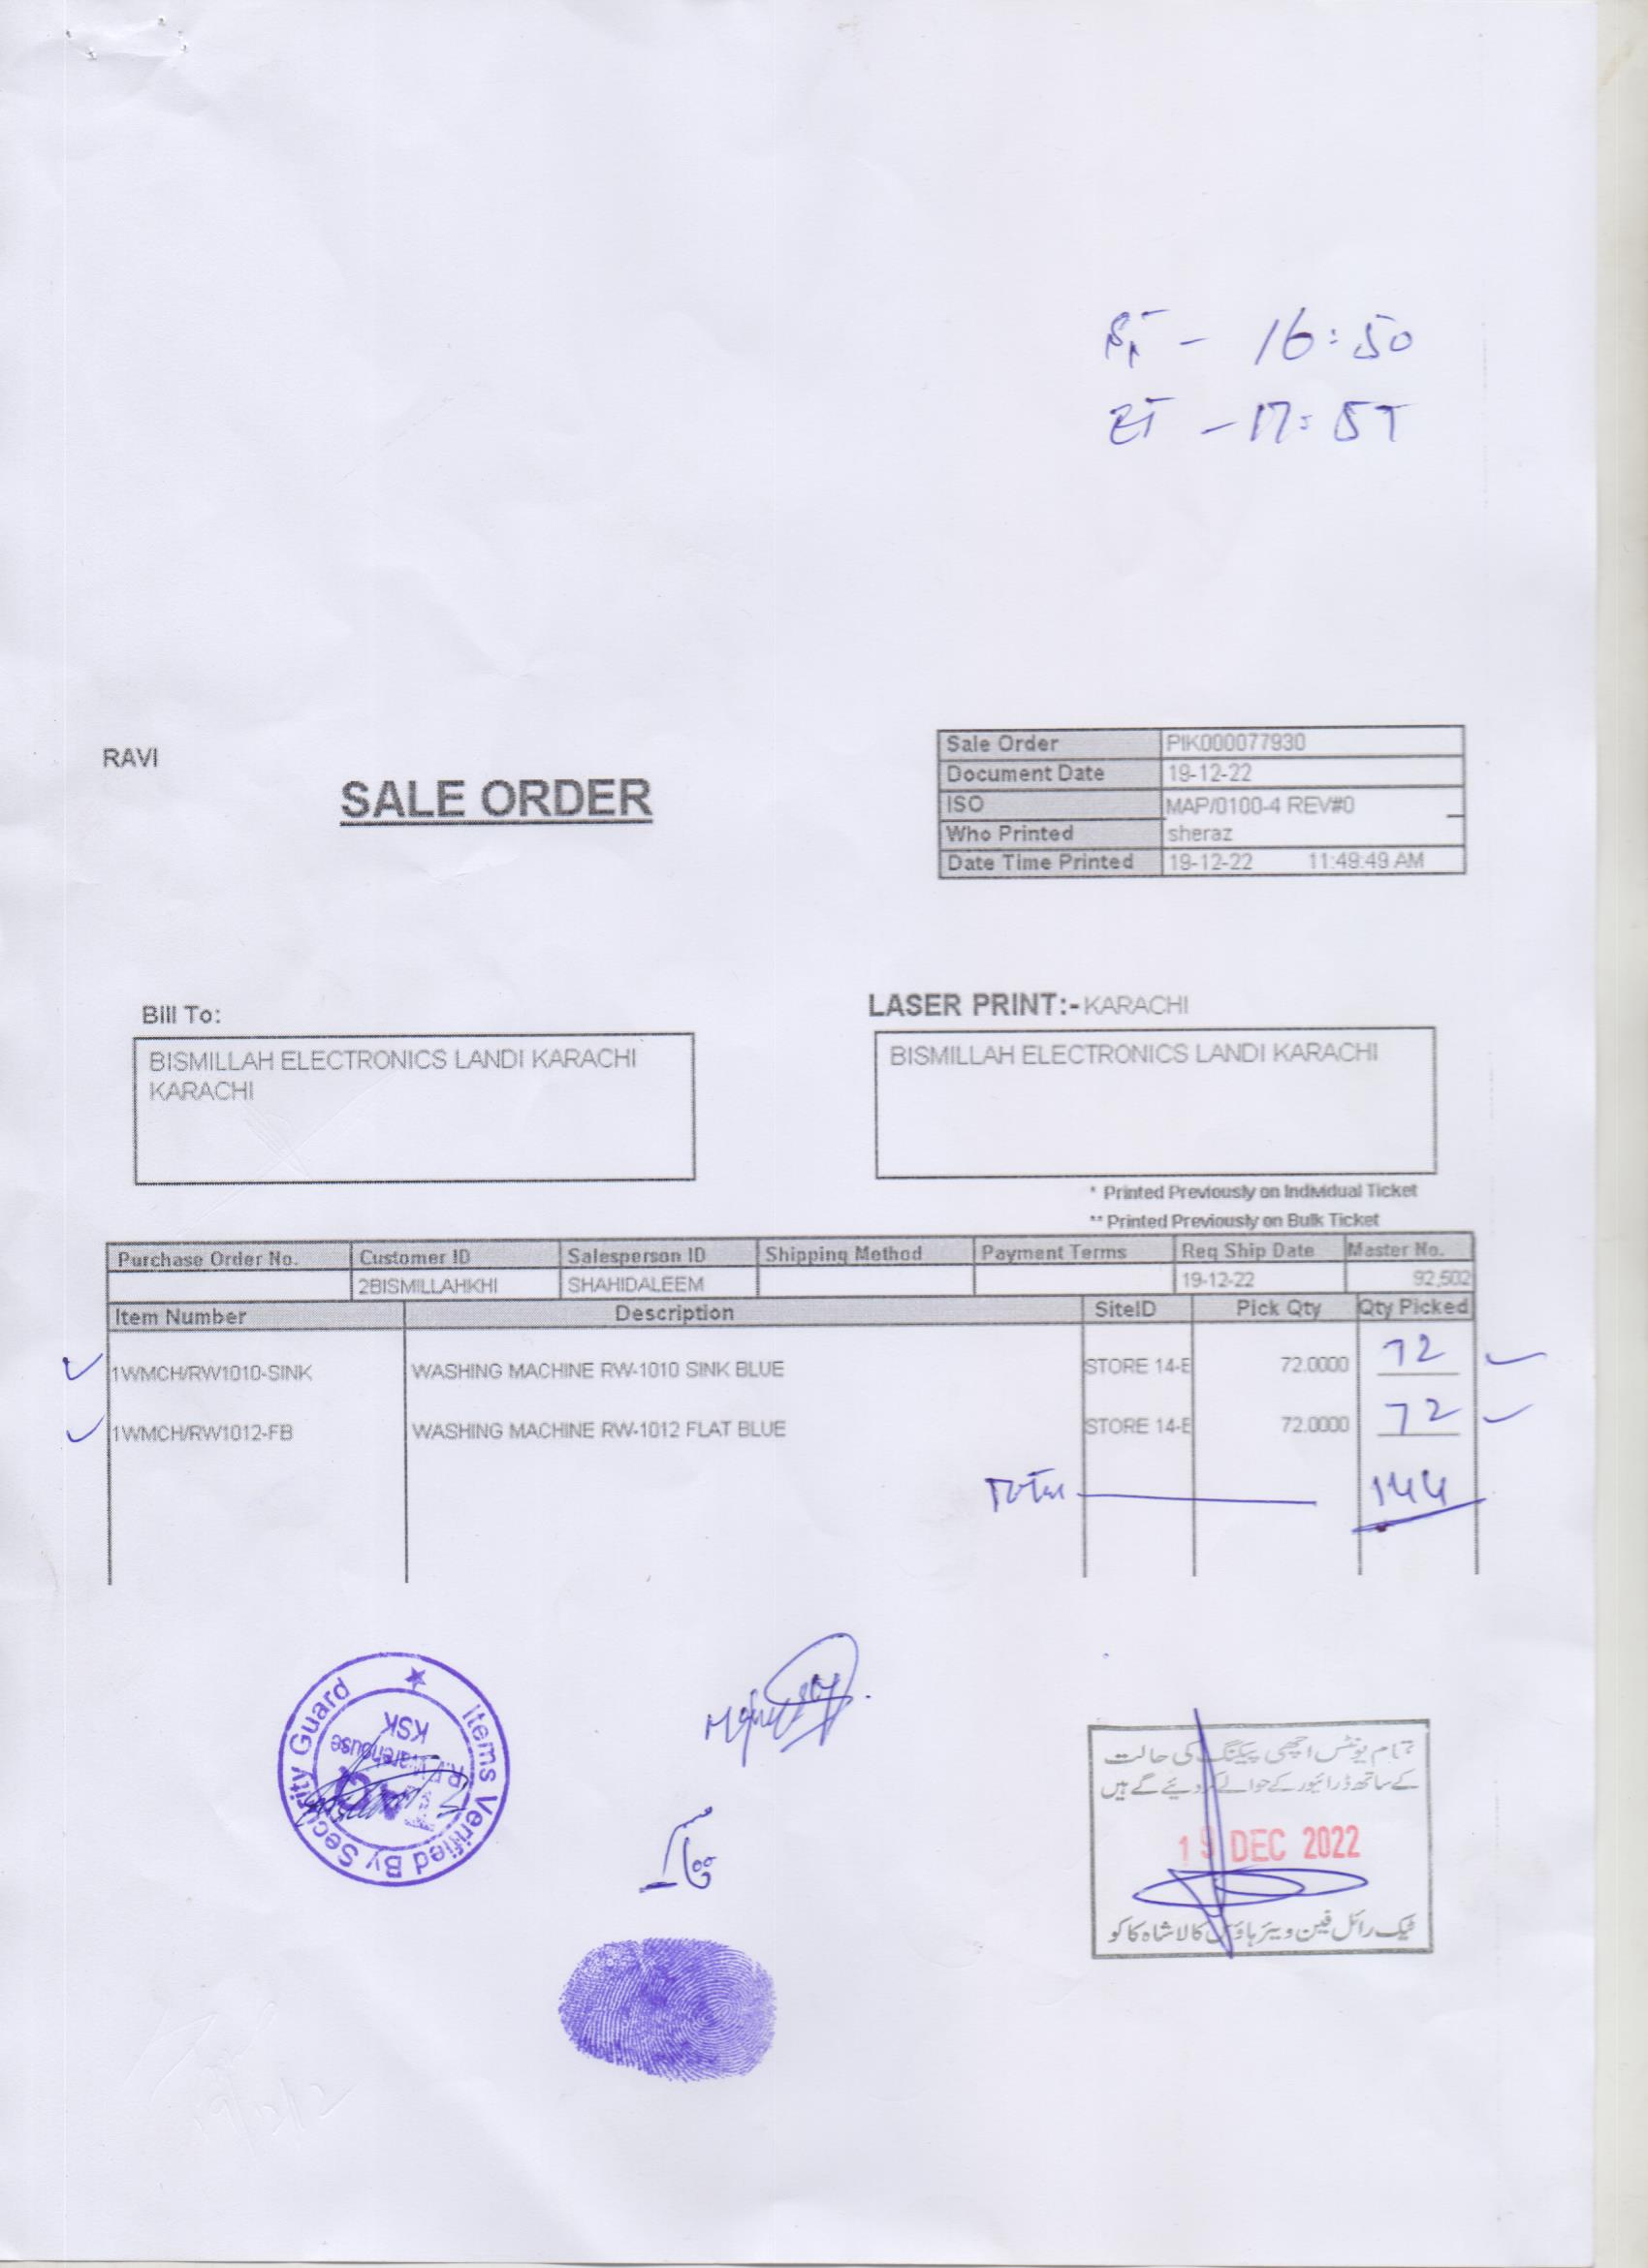 ST - 16:50
ET - 17:55
RAVI
SALE ORDER
Sale Order PIK000077930
Document Date 19-12-22
ISO MAP/0100-4 REV#0
Who Printed sheraz
Date Time Printed 19-12-22 11:49:49 AM
Bill To:
LASER PRINT:- KARACHI
BISMILLAH ELECTRONICS LANDI KARACHI
KARACHI
BISMILLAH ELECTRONICS LANDI KARACHI
* Printed Previously on Individual Ticket
** Printed Previously on Bulk Ticket
Purchase Order No. Customer ID Salesperson ID Shipping Method Payment Terms Req Ship Date Master No.
2BISMILLAHKHI SHAHIDALEEM 19-12-22 92,502
Item Number Description SiteID Pick Qty Qty Picked
1WMCH/RW1010-SINK WASHING MACHINE RW-1010 SINK BLUE STORE 14-E 72.0000 72
1WMCH/RW1012-FB WASHING MACHINE RW-1012 FLAT BLUE STORE 14-E 72.0000 72
Total 144
Items Verified By Security Guard
TAQ
R.F Warehouse
KSK
تمام یونٹس اچھی پیکنگ کی حالت
کے ساتھ ڈرائیور کے حوالے کر دیئے گے ہیں
19 DEC 2022
ٹیک رائل فین ویئر ہاؤس کالا شاہ کاکو